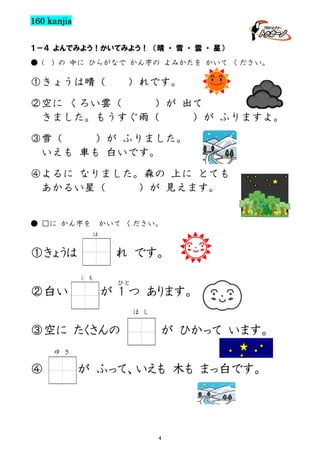 160 kanjis
1－4 よんでみよう！かいてみよう！（晴・雪・雲・星）
●（ ）の 中に ひらがなで かん字の よみかたを かいて ください。
①きょうは晴（ ）れです。
②空に くろい雲（ ）が 出て
きました。もうすぐ雨（ ）が ふりますよ。
③雪（ ）が ふりました。
いえも 車も 白いです。
④よるに なりました。森の 上に とても
あかるい星（ ）が 見えます。
●□に かん字を かいて ください。
は
①きょうは □ れ です。
くも ひと
②白い □ が 1つ あります。
ほし
③空に たくさんの □ が ひかって います。
ゆき
④ □ が ふって、いえも 木も まっ白です。
4